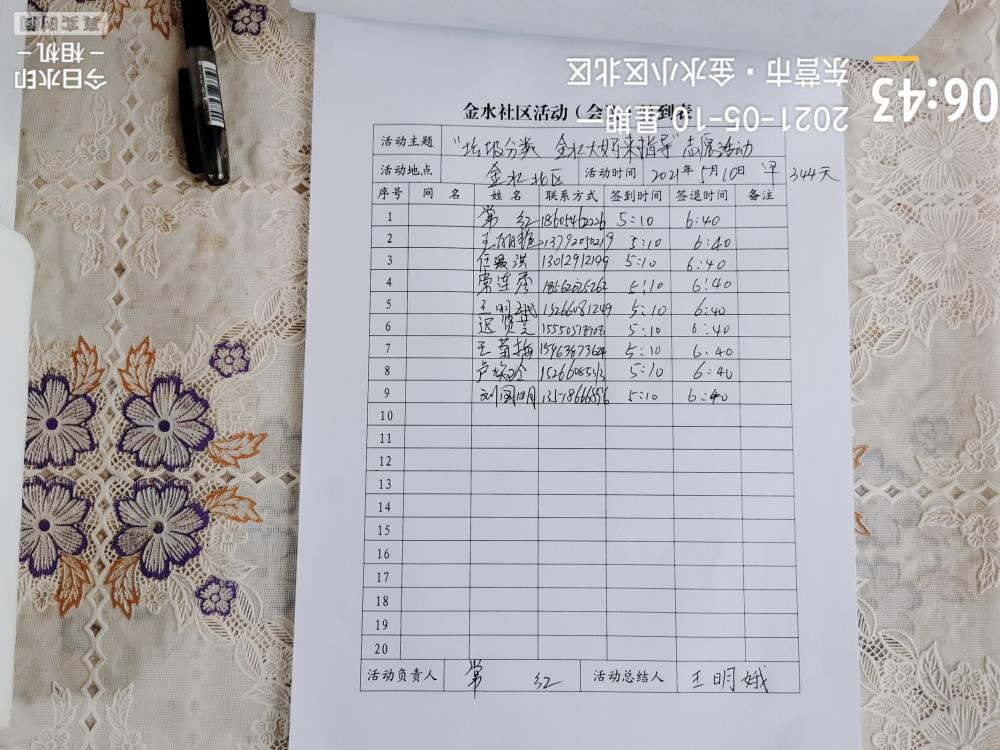 金水社区活动（会 到表
活动主题 "垃圾分类 金水大妈来指导"志愿活动
活动地点 金水北区 活动时间 2021年5月10日 早 344天
序号 网 名 姓 名 联系方式 签到时间 签退时间 备注
1 常 红 5:10 6:40
2 5:10 6:40
3 任爱洪 13012912199 5:10 6:40
4 常连秀 5:10 6:40
5 王明娥 15266081249 5:10 6:40
6 迟贤芝 5:10 6:40
7 王菊梅 5:10 6:40
8 5:10 6:40
9 刘国明 5:10 6:40
10
11
12
13
14
15
16
17
18
19
20
活动负责人 常 红 活动总结人 王明娥
06:43
2021-05-10 星期一
东营市·金水小区北区
今日水印
－相机－
真实时间